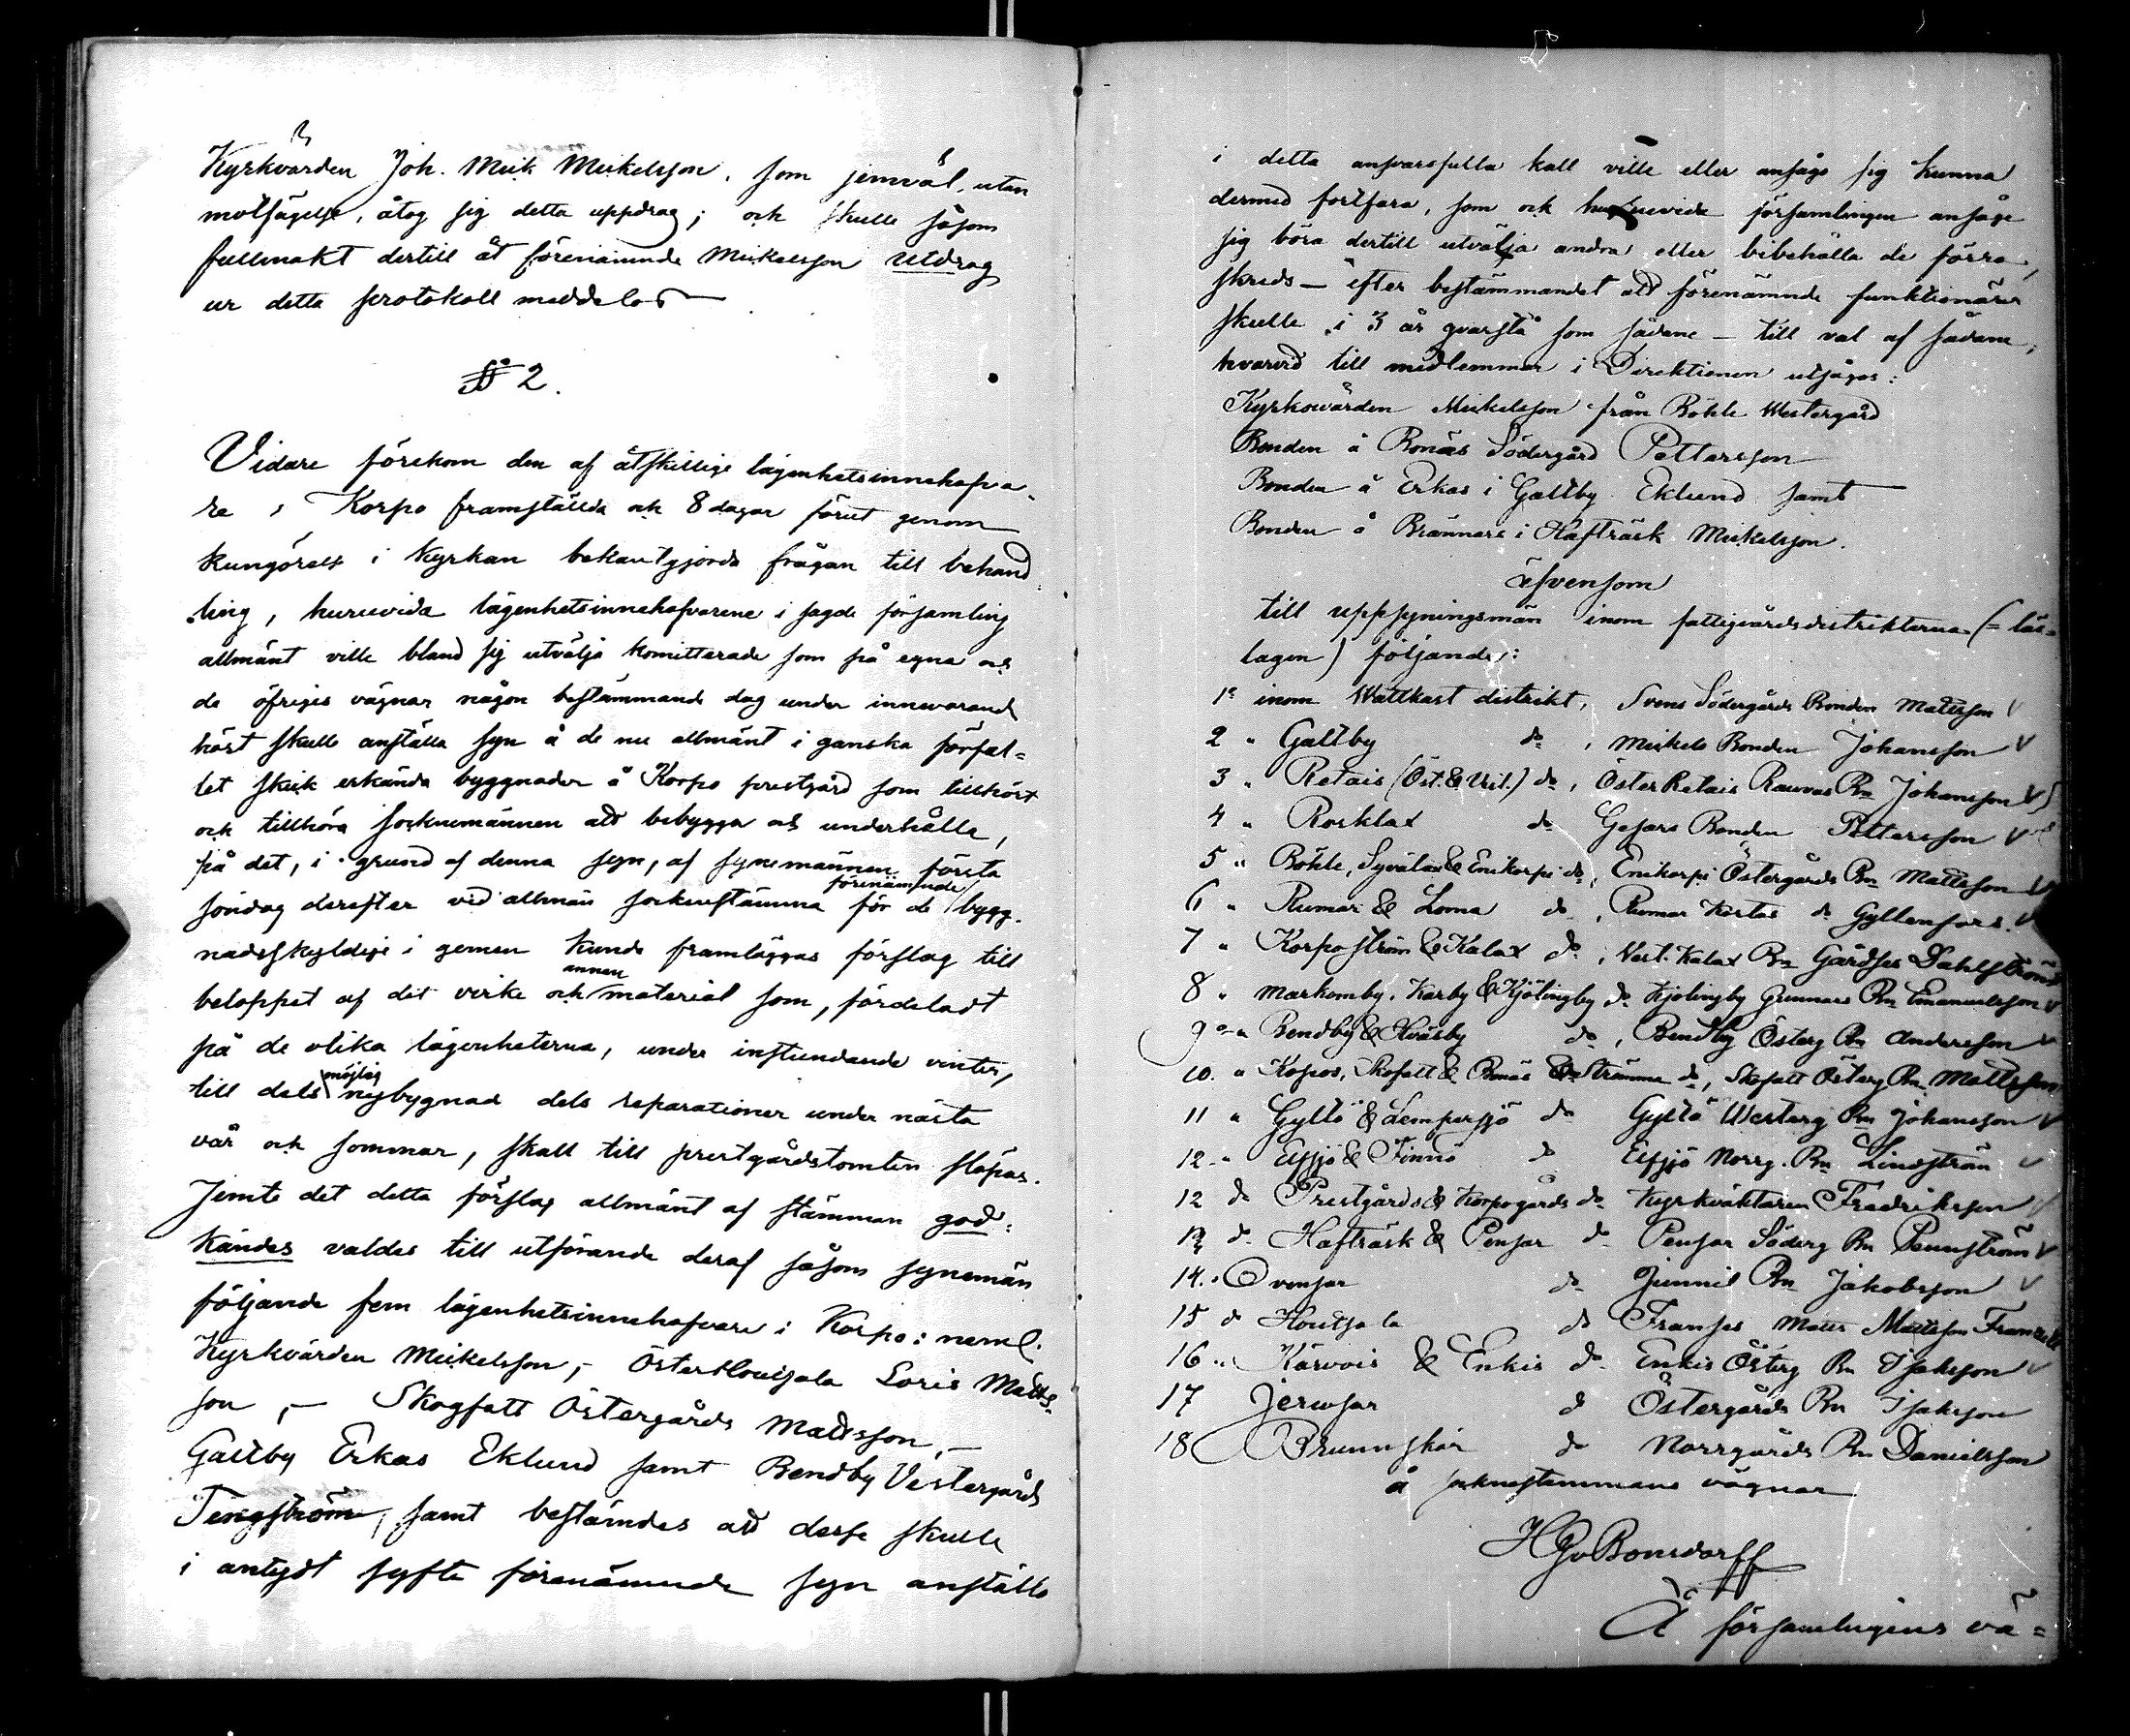 Kyrkvärden Joh. Mick Mickelsson, som jemväl, utan
motsägelse, åtog sig detta uppdrag; och skulle såsom
fullmakt dertill åt förenämnde Mickelsson utdrag
ur detta protokoll meddelas
§ 2.
Vidare förekom den af åtskillige lägenhetsinnehafva-
re i Korpo framställda och 8 dagar förut genom
kungörelse i kyrkan bekantgjorda frågan till behand
ling, huruvida lägenhetsinnehafvarene i sagde församling
allmänt ville bland sig utvälja komitterade som på egna och
de öfriges vägnar någon bestämmande dag under innevarande
höst skulle anställa syn å de nu allmänt i ganska förfal-
let skick erkända byggnader å Korpo prestgård som tillhört
och tillhöra socknemännen att bebygga och underhålla,
på det, i grund af denna syn, af synemännen första
söndag derefter vid allmän sockenstämma för de förenämnde bygg-
nadsskyldige i gemen kunde framläggas förslag till
beloppet af det virke och annan material som, fördeladt
på de olika lägenheterna, under instundande vinter,
till dels möjlig nybygnad dels reparationer under nästa
vår och sommar, skall till prestgårdstomten släpas.
Jemte det detta förslag allmänt af stämman god-
kändes valdes till utförande deraf såsom synemän
följande fem lägenhetsinnehafvare i Korpo: neml.
Kyrkvärden Mickelsson, - Österhoutsala Loris Matts-
son, - Skogfatt Östergårds Mattsson, -
Galtby Erkas Eklund samt Bendby Vestergårds
Tengström, samt bestämdes att desse skulle
i antydt syfte förenämnde syn anställa
i detta ansvarsfulla kall ville eller ansågo sig kunna
dermed fortfara, som och huruvida församlingen ansåge
sig böra dertill utvälja andra eller bibehålla de förra,
skreds - efter bestämmandet att förenämnde funktionärer
skulle i 3 år qvarstå som sådane - till val af sådane,
hvarvid till medlemmar i Direktionen utsågos:
Kyrkovärden Mickelsson från Böhle Westergård
Bonden å Bonäs Södergård Pettersson
Bonden å Erkas i Galtby Eklund samt
Bonden å Brännars i Hafträsk Mickelsson.
äfvensom
till uppsyningsmän inom fattigvårdsdistrikterna (= läs-
lagen) följande:
1º inom Wattkast distrikt, Svens Södergårds Bonden Mattsson
2 " Galtby do, Mickels Bonden Johansson
3 " Retais (Öst. & Vest.) do, Öster Retais Rauvas Bn Johansson
4 " Rosklax do Gesars Bonden Pettersson
5 " Böhle, Syvälax & Enikorpi do, Enikorpi Östergårds Bn Mattsson
6 " Rumar & Loma do, Rumar do Gyllenfors
7 " Korpoström & Kalax do, Vest. Kalax Bn Gårdses Dahlström
8 " Markomby, Karby & Kjölingby do Kjölingby Gunnars Bn Emanuelsson
9º " Bendby & Hväsby do, Bendby Österg Bn Andersson
10. " Kopos, Skofatt & Bonäs & Strömma do, Skofatt Österg Bn Mattsson
11 " Gyltö & Lempersjö do Gyltö Westerg Bn Johansson
12 " Elfsjö & Finnö do Elfsjö Norrg. Bn Lindström
12 do Prestgårds & Korpogårds do Kyrkväktaren Fredriksson
13 do Hafträsk & Pensar do Pensar Söderg Bn Pennström
14. " Ovensar do Gunnil Bn Jakobsson
15 do Houtsala do Fransas Matts Mattsson
16 " Kärvois & Enkis do Enkis Österg Bn Isaksson
17 Jermsar do Östergårds Bn Isaksson
18 Brunnskär do Norrgårds Bn Danielsson
å socknestämmans vägnar
HGvBonsdorff
Å församlingens vä=